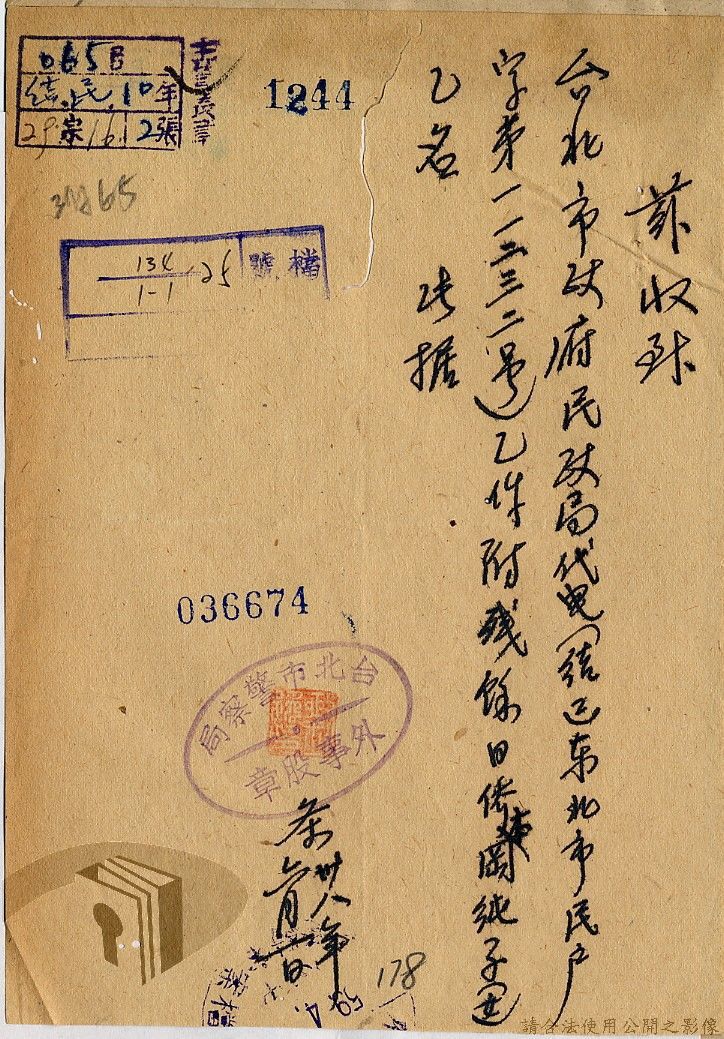 茲收到
台北市政府民政局代电（結巳东北市民戶
字第一一二三二号）乙件附殘餘日僑岡純子
乙名
此据
卅八年
六月
日
台北市警察局
外事股章
1244
036674
065B
結.民.10年
29宗16.12張
3465
檔號
134
1-1
25
178
請合法使用公開之影像